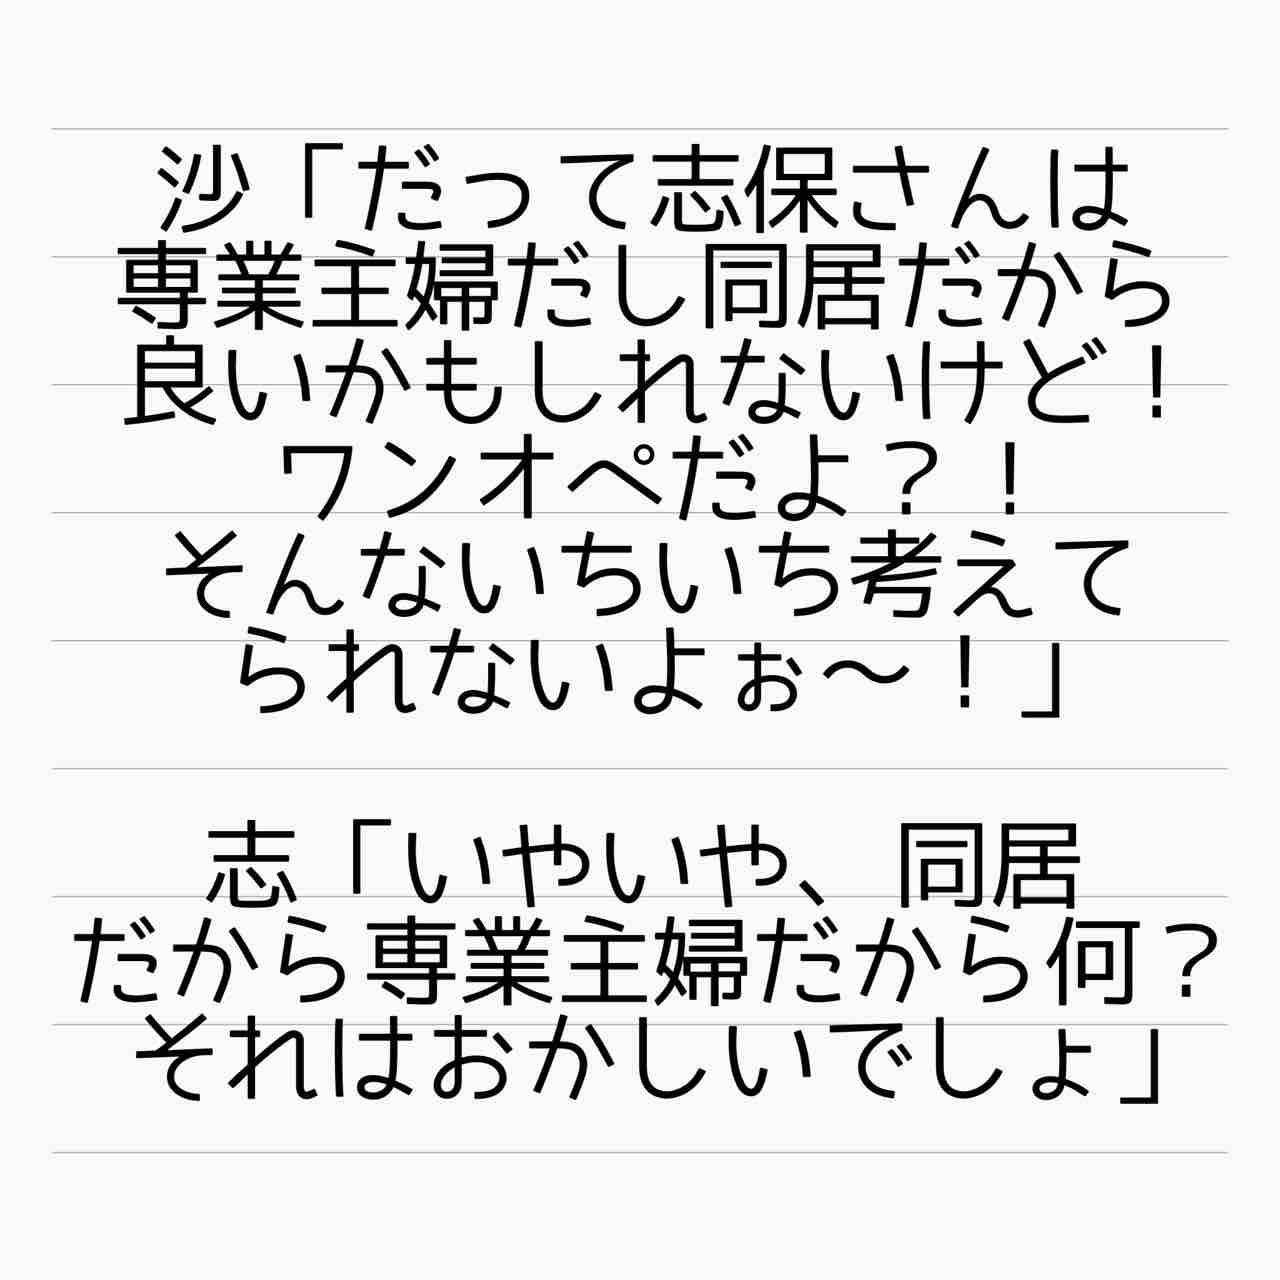 沙「だって志保さんは
専業主婦だし同居だから
良いかもしれないけど！
ワンオペだよ？！
そんないちいち考えて
られないよぉ〜！」
志「いやいや、同居
だから専業主婦だから何？
それはおかしいでしょ」